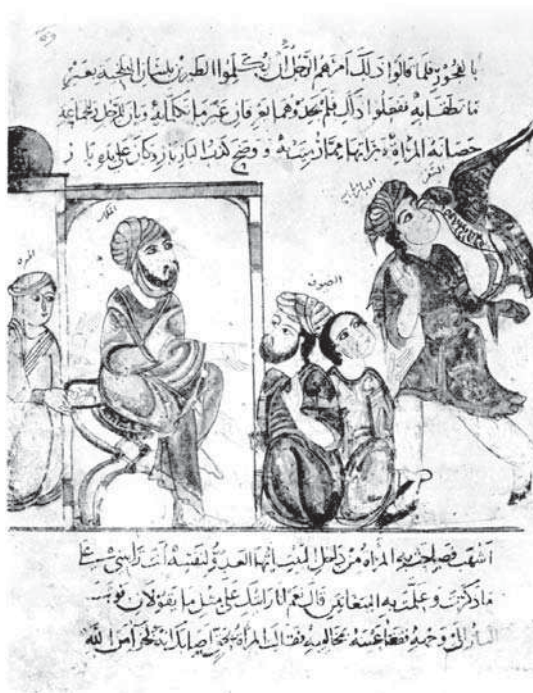 بالفجور فلما قالوا ذلك امرهم الرجل ان يكلموا الطيرين بلسان البلخية بغير
ما نطقا به ففعلوا ذلك فلم يجدوهما يعرفان غير ما تكلما به وبان للرجل والجماعة
حصانة المراة وبراتها مما رميت به ووضح كذب البازيار وكان على يده باز
البازيار
الضيوف
المراة
اشهب فصاحت به المراة من داخل البيت ايها العدو لنفسه انت رايتني
ما ذكرت وعلمت به الببغاتين قال نعم انا رايتك على مثل ما يقولان فوثب
الباز الى وجهه ففقا عينه بمخاليبه فقالت المراة بحق اصابك انه لجزا من الله